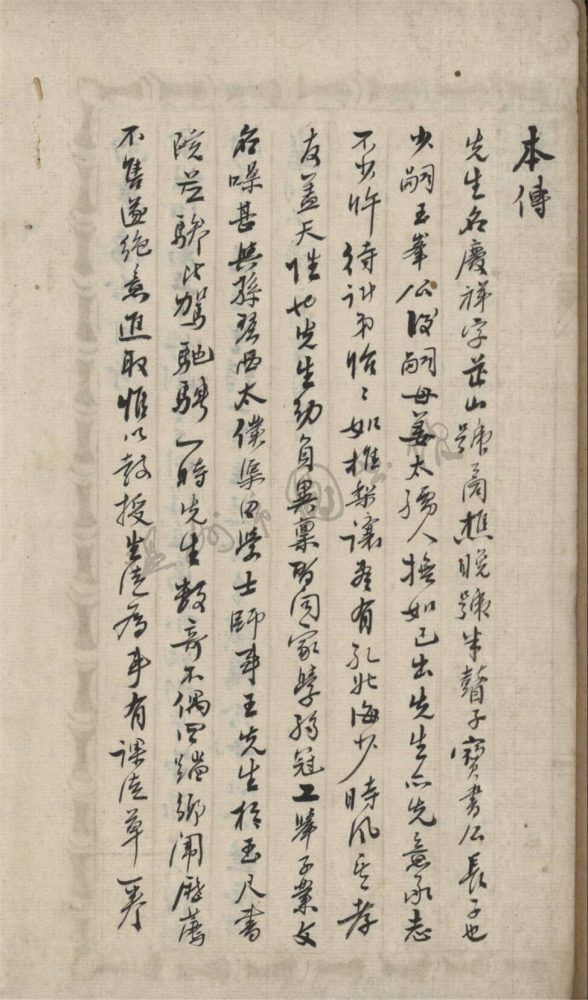 本傳
先生名慶祥字芷山號商樵晚號半瞽子寶書公長子也
少嗣玉峯公後嗣母姜太孺人撫如己出先生亦先意承志
不少忤待諸弟怡〻如推梨讓棗有孔北海少時風其孝
友蓋天性也先生幼負異稟習聞家學弱冠工舉子業文
名噪甚與孫琴西太僕渠田學士師事王先生於玉尺書
院並驂比駕馳騁一時先生數奇不偶四躓鄉闈歷薦
不售遂絶意進取惟以教授生徒為事有課徒草一卷